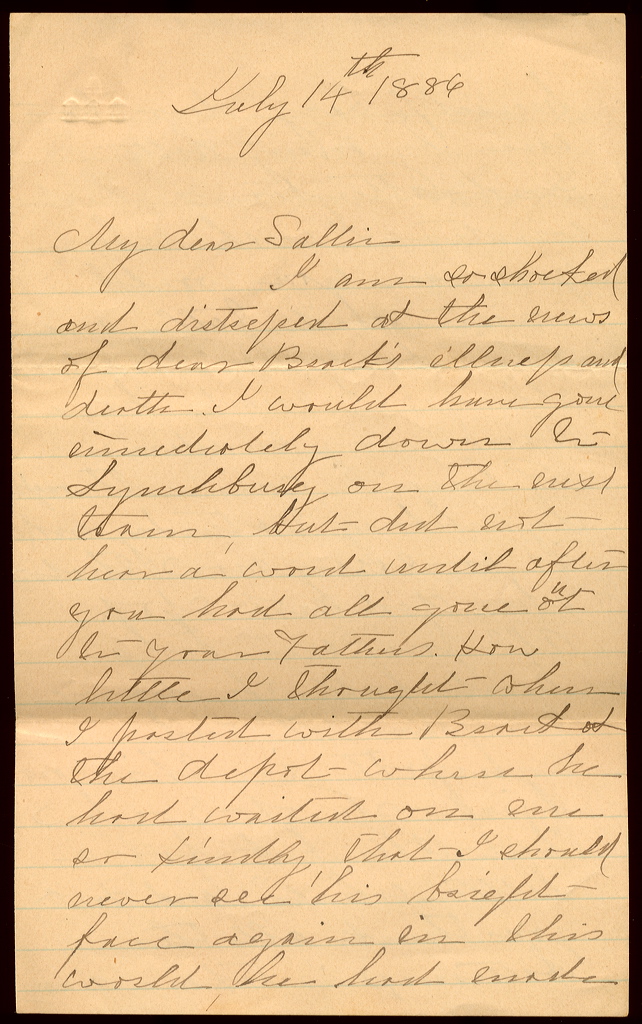 July 14th 1886
My dear Sallie
I am so shocked
and distressed at the news
of dear Brent's illness and
death. I would have gone
immediately down to
Lynchburg on the next
train, but did not
hear a word until after
you had all gone out
to your Fathers. How
little I thought when
I parted with Brent at
the depot where he
had waited on me
so kindly, that I should
never see his bright
face again in this
world, he had made